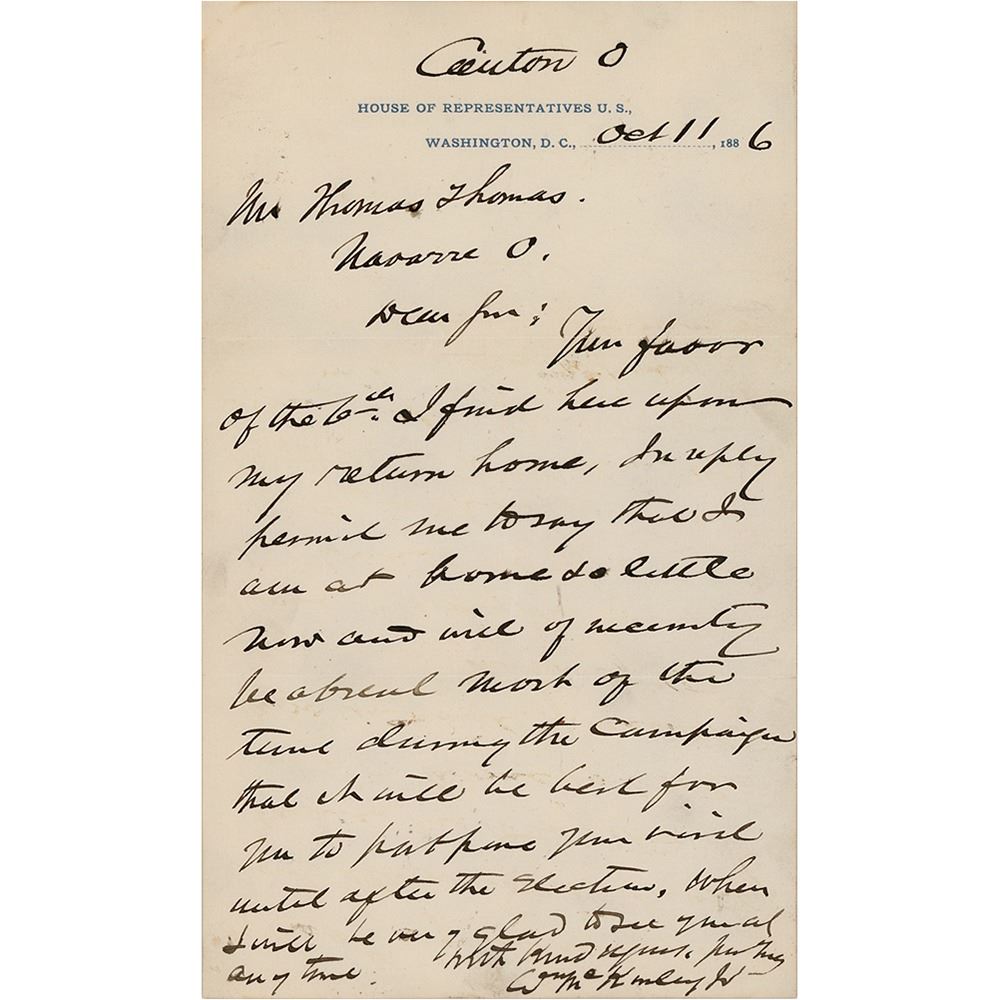 Canton O
HOUSE OF REPRESENTATIVES U. S.,
WASHINGTON, D. C., Oct 11, 1886
Mr Thomas Thomas.
Navarre O.
Dear Sir:
Your favor
of the 6th. I find here upon
my return home, In reply
permit me to say that I
am at home so little
now and will of necessity
be absent most of the
time during the Campaign
that it will be best for
you to postpone your visit
until after the Election, when
I will be very glad to see you at
any time.
With kind regards,
Wm McKinley Jr